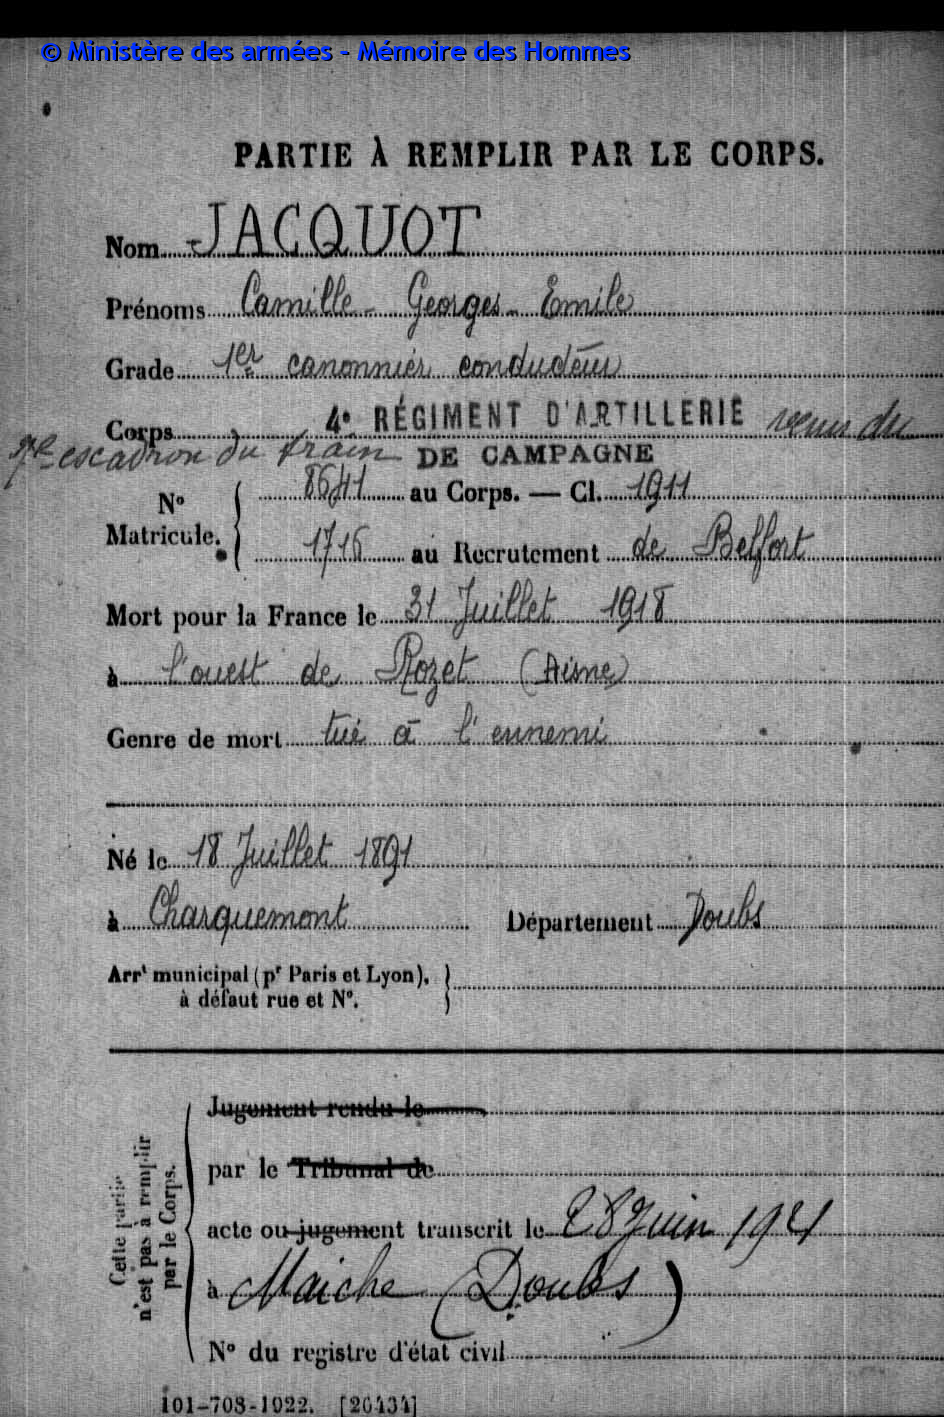 © Ministère des armées - Mémoire des Hommes
PARTIE À REMPLIR PAR LE CORPS.
Nom JACQUOT
Prénoms Camille - Georges - Emile
Grade 1er canonnier conducteur
Corps 4e RÉGIMENT D'ARTILLERIE venu du
7e escadron du train DE CAMPAGNE
No Matricule. 8641 au Corps. — Cl. 1911
1716 au Recrutement de Belfort
Mort pour la France le 31 Juillet 1918
à l'ouest de Rozet (Aisne)
Genre de mort tué à l'ennemi
Né le 18 Juillet 1891
à Charquemont Département Doubs
Arrt municipal (pr Paris et Lyon),
à défaut rue et No.
Cette partie
n'est pas à remplir
par le Corps.
Jugement rendu le
par le Tribunal de
acte ou jugement transcrit le 28 Juin 1921
à Maiche (Doubs)
No du registre d'état civil
101-708-1922. [26434]